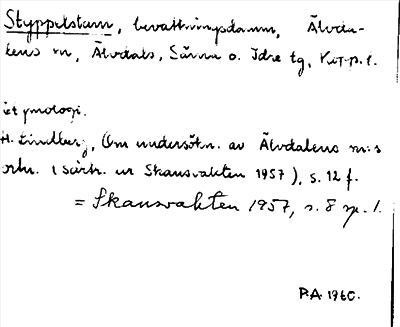 Styppelstam, bevattningsdamm, Älvda-
lens sn, Älvdals, Särna o. Idre tg, Kop. l.
Etymologi.
H. Lindberg, Om undersökn. av Älvdalens sn:s
ortn. (särtr. ur Skansvakten 1957), s. 12 f.
= Skansvakten 1957, s. 8 sp. 1.
P.A. 1960.